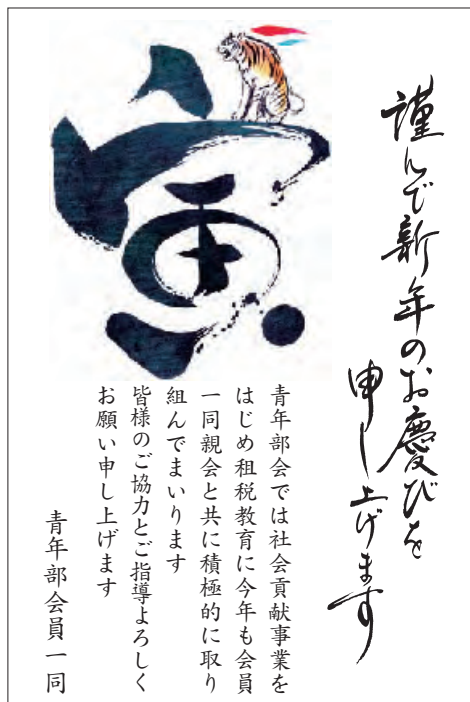 謹んで新年のお慶びを
申し上げます
寅
青年部会では社会貢献事業を
はじめ租税教育に今年も会員
一同親会と共に積極的に取り
組んでまいります
皆様のご協力とご指導よろしく
お願い申し上げます
青年部会員一同